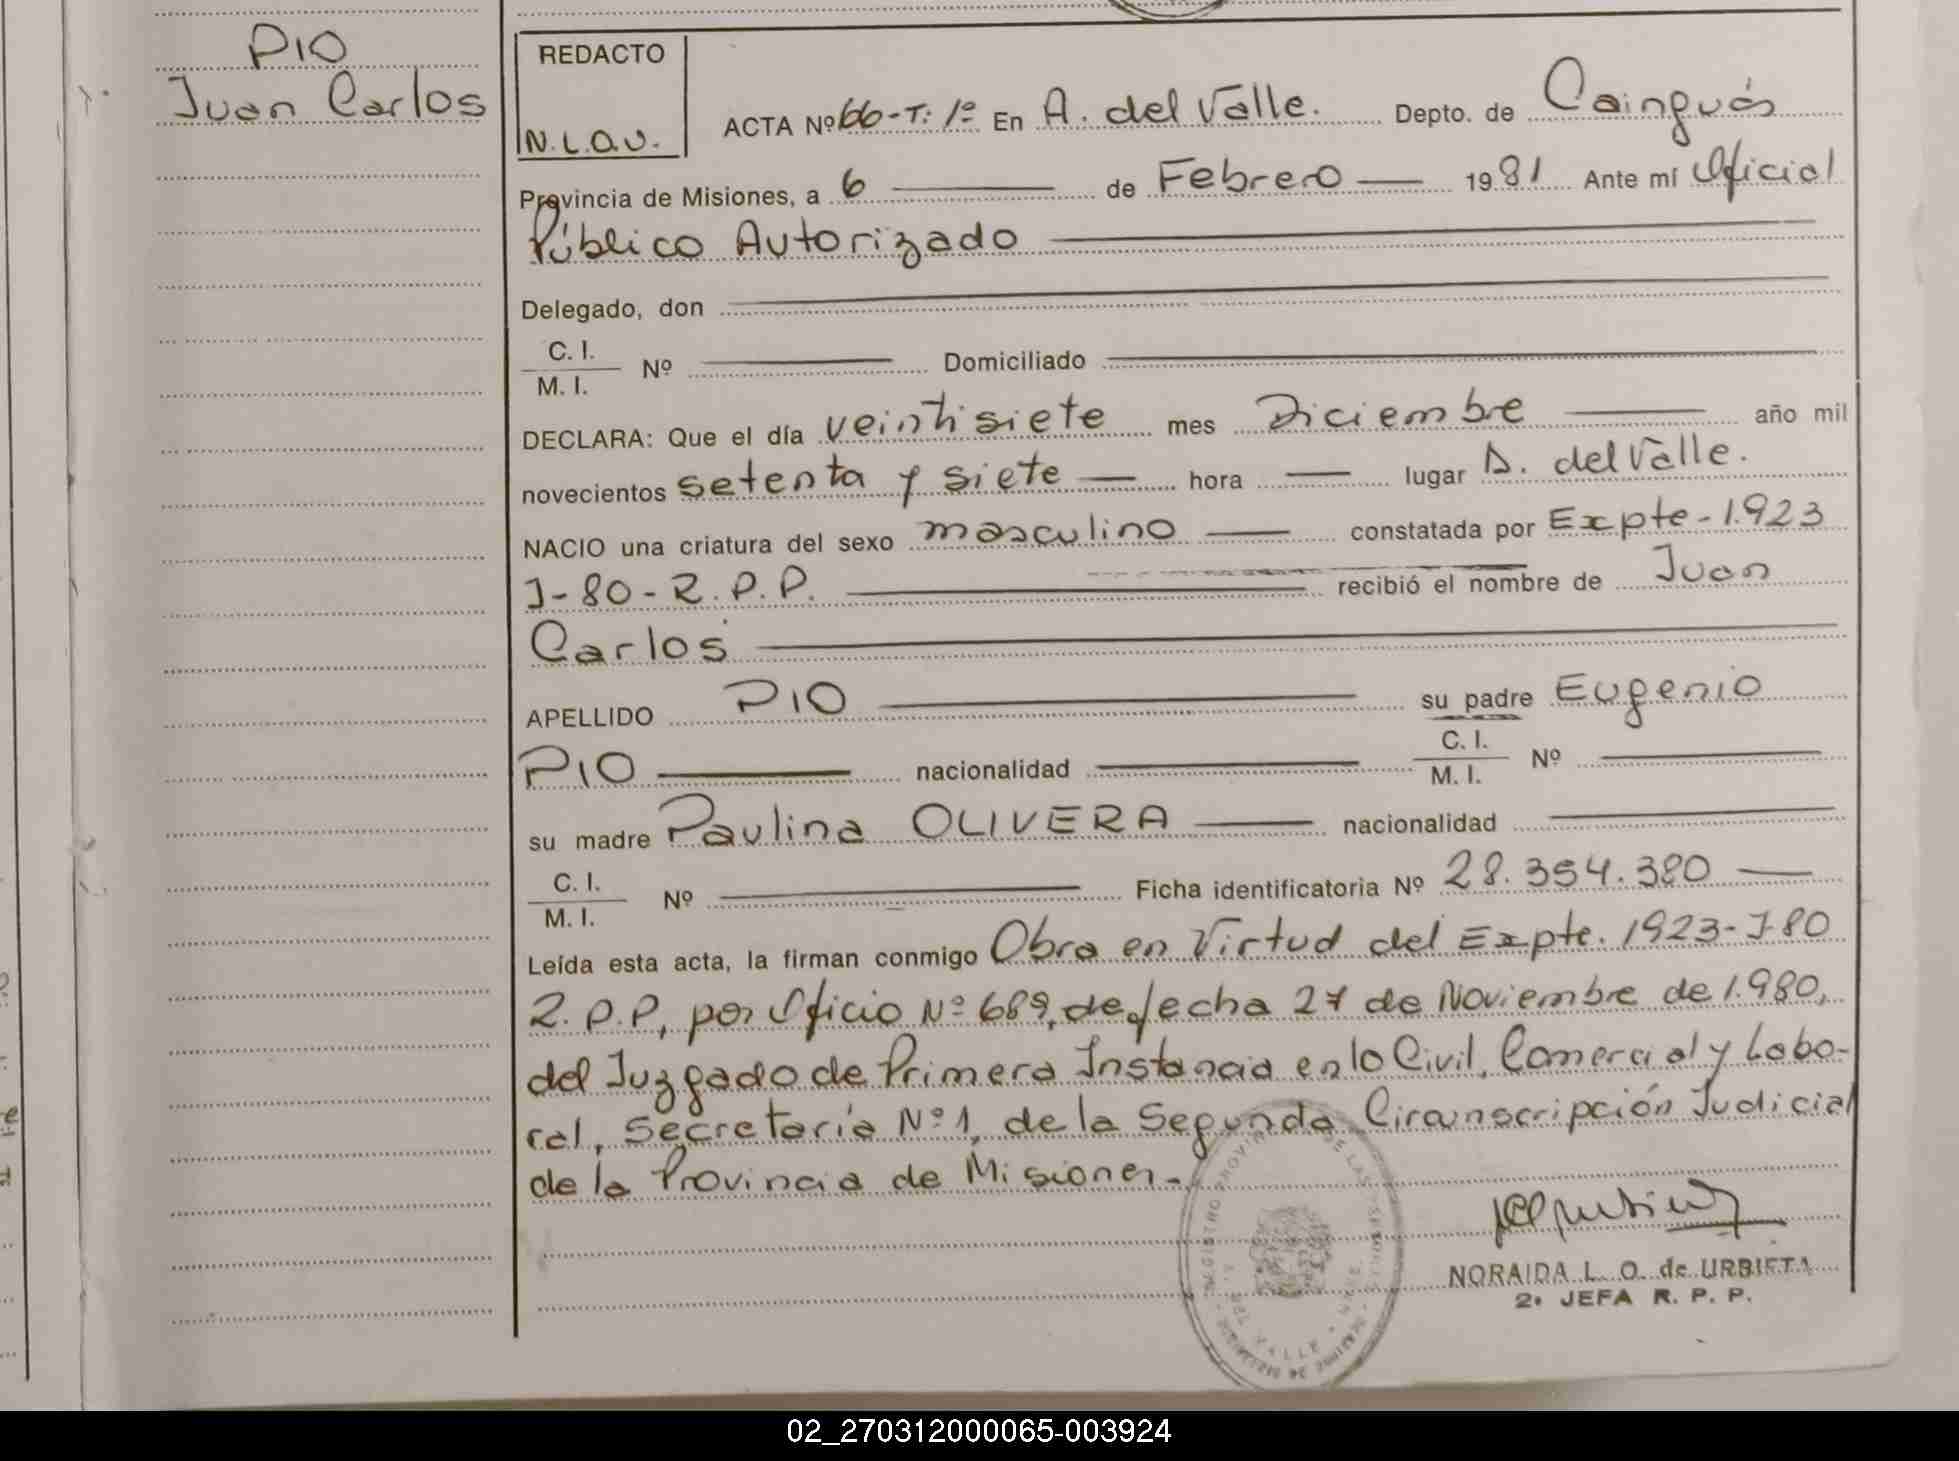 PIO
Juan Carlos
REDACTO
N.L.O.U.
ACTA Nº 66-T: 1º En A. del Valle. Depto. de Cainguás
Provincia de Misiones, a 6 de Febrero 1981 Ante mí Oficial
Público Autorizado
Delegado, don
C. I.
M. I. Nº Domiciliado
DECLARA: Que el día veintisiete mes Diciembre año mil
novecientos setenta y siete hora lugar A. del Valle.
NACIO una criatura del sexo masculino constatada por Expte-1.923
J-80-R.P.P. recibió el nombre de Juan
Carlos
APELLIDO PIO su padre Eugenio
PIO nacionalidad C. I.
M. I. Nº
su madre Paulina OLIVERA nacionalidad
C. I.
M. I. Nº Ficha identificatoria Nº 28.354.380
Leída esta acta, la firman conmigo Obra en Virtud del Expte. 1923-J-80
R.P.P, por Oficio Nº 689, de fecha 27 de Noviembre de 1.980,
del Juzgado de Primera Instancia en lo Civil, Comercial y Labo-
ral, Secretaría Nº 1, de la Segunda Circunscripción Judicial
de la Provincia de Misiones.-
NORAIDA L. O. de URBIETA
2ª JEFA R. P. P.
02_270312000065-003924